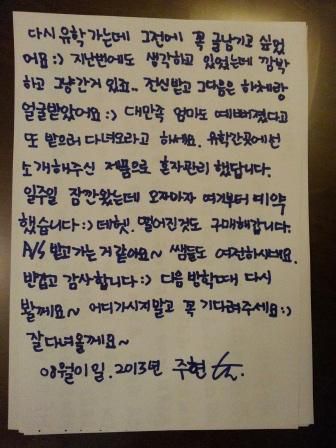 다시 유학가는데 그전에 꼭 글남기고 싶었
어요:) 지난번에도 생각하고 있었는데 깜박
하고 그냥간거 있죠.. 전신받고 그다음은 하체랑
얼굴받았어요:) 대만족 엄마도 예뻐졌다고
또 받으러 다녀오라고 하세요. 유학간곳에선
소개해주신 제품으로 혼자관리 했답니다.
일주일 잠깐왔는데 오자마자 여기부터 예약
했습니다:) 데헷. 떨어진것도 구매해갑니다.
A/S 받고가는거 같아요~ 쌤들도 여전하시네요.
반갑고 감사합니다:) 다음 방학때 다시
봴께요~ 어디가시지말고 꼭 기다려주세요:)
잘다녀올께요~
08월01일. 2013년 주현